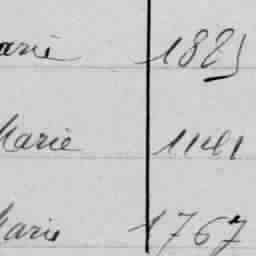 arie 1825
Marie 1141
Marie 1767